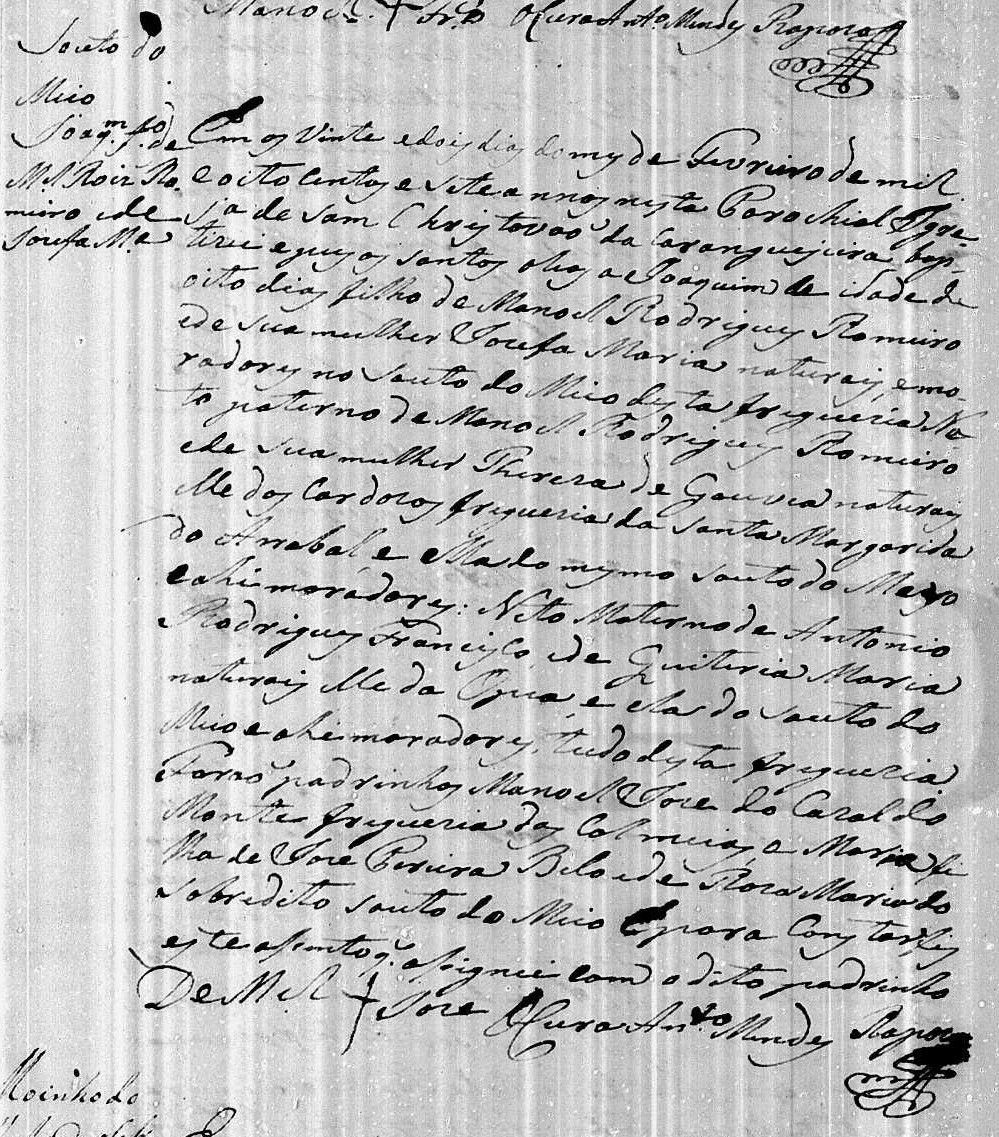 Manoel + Frz O Cura Anto. Mendes Rapozo
Souto do
Meio
Joaqm. fo. de
Mel Roiz Ro
meiro e de
Josefa Ma
Em os Vinte e dois dias do mes de Fevreiro de mil
e oito Centos e sete annos nesta Parochial Igre-
ja de Sam Christovaõ da Caranguejeira bap-
tizei e pus os santos oleos a Joaquim de idade de
oito dias filho de Manoel Rodrigues Romeiro
e de sua mulher Josefa Maria naturais, e mo-
radores no Souto do Meio desta freguezia Ne-
to paterno de Manoel Rodrigues Romeiro
e de sua mulher Thereza de Gouvea naturais
elle dos Cardozos freguezia da Santa Margarida
do Arrabal e ella do mesmo Souto do Meyo
e ahi moradores: Neto Materno de Antonio
Rodrigues Francisco, e de Quiteria Maria
naturais elle da Opea, e ela do Souto do
Meio e ahi moradores, tudo desta freguezia
Foraõ padrinhos Manoel Joze do Cazal do
Monte freguezia das Colmeias, e Maria fi
lha de Joze Pereira Belo e de Roza Maria do
sobredito Souto do Meio E para Constar fis
este asento q. asignei com o dito padrinho
De Mel + Joze O Cura Anto. Mendes Rapozo
Moinho do